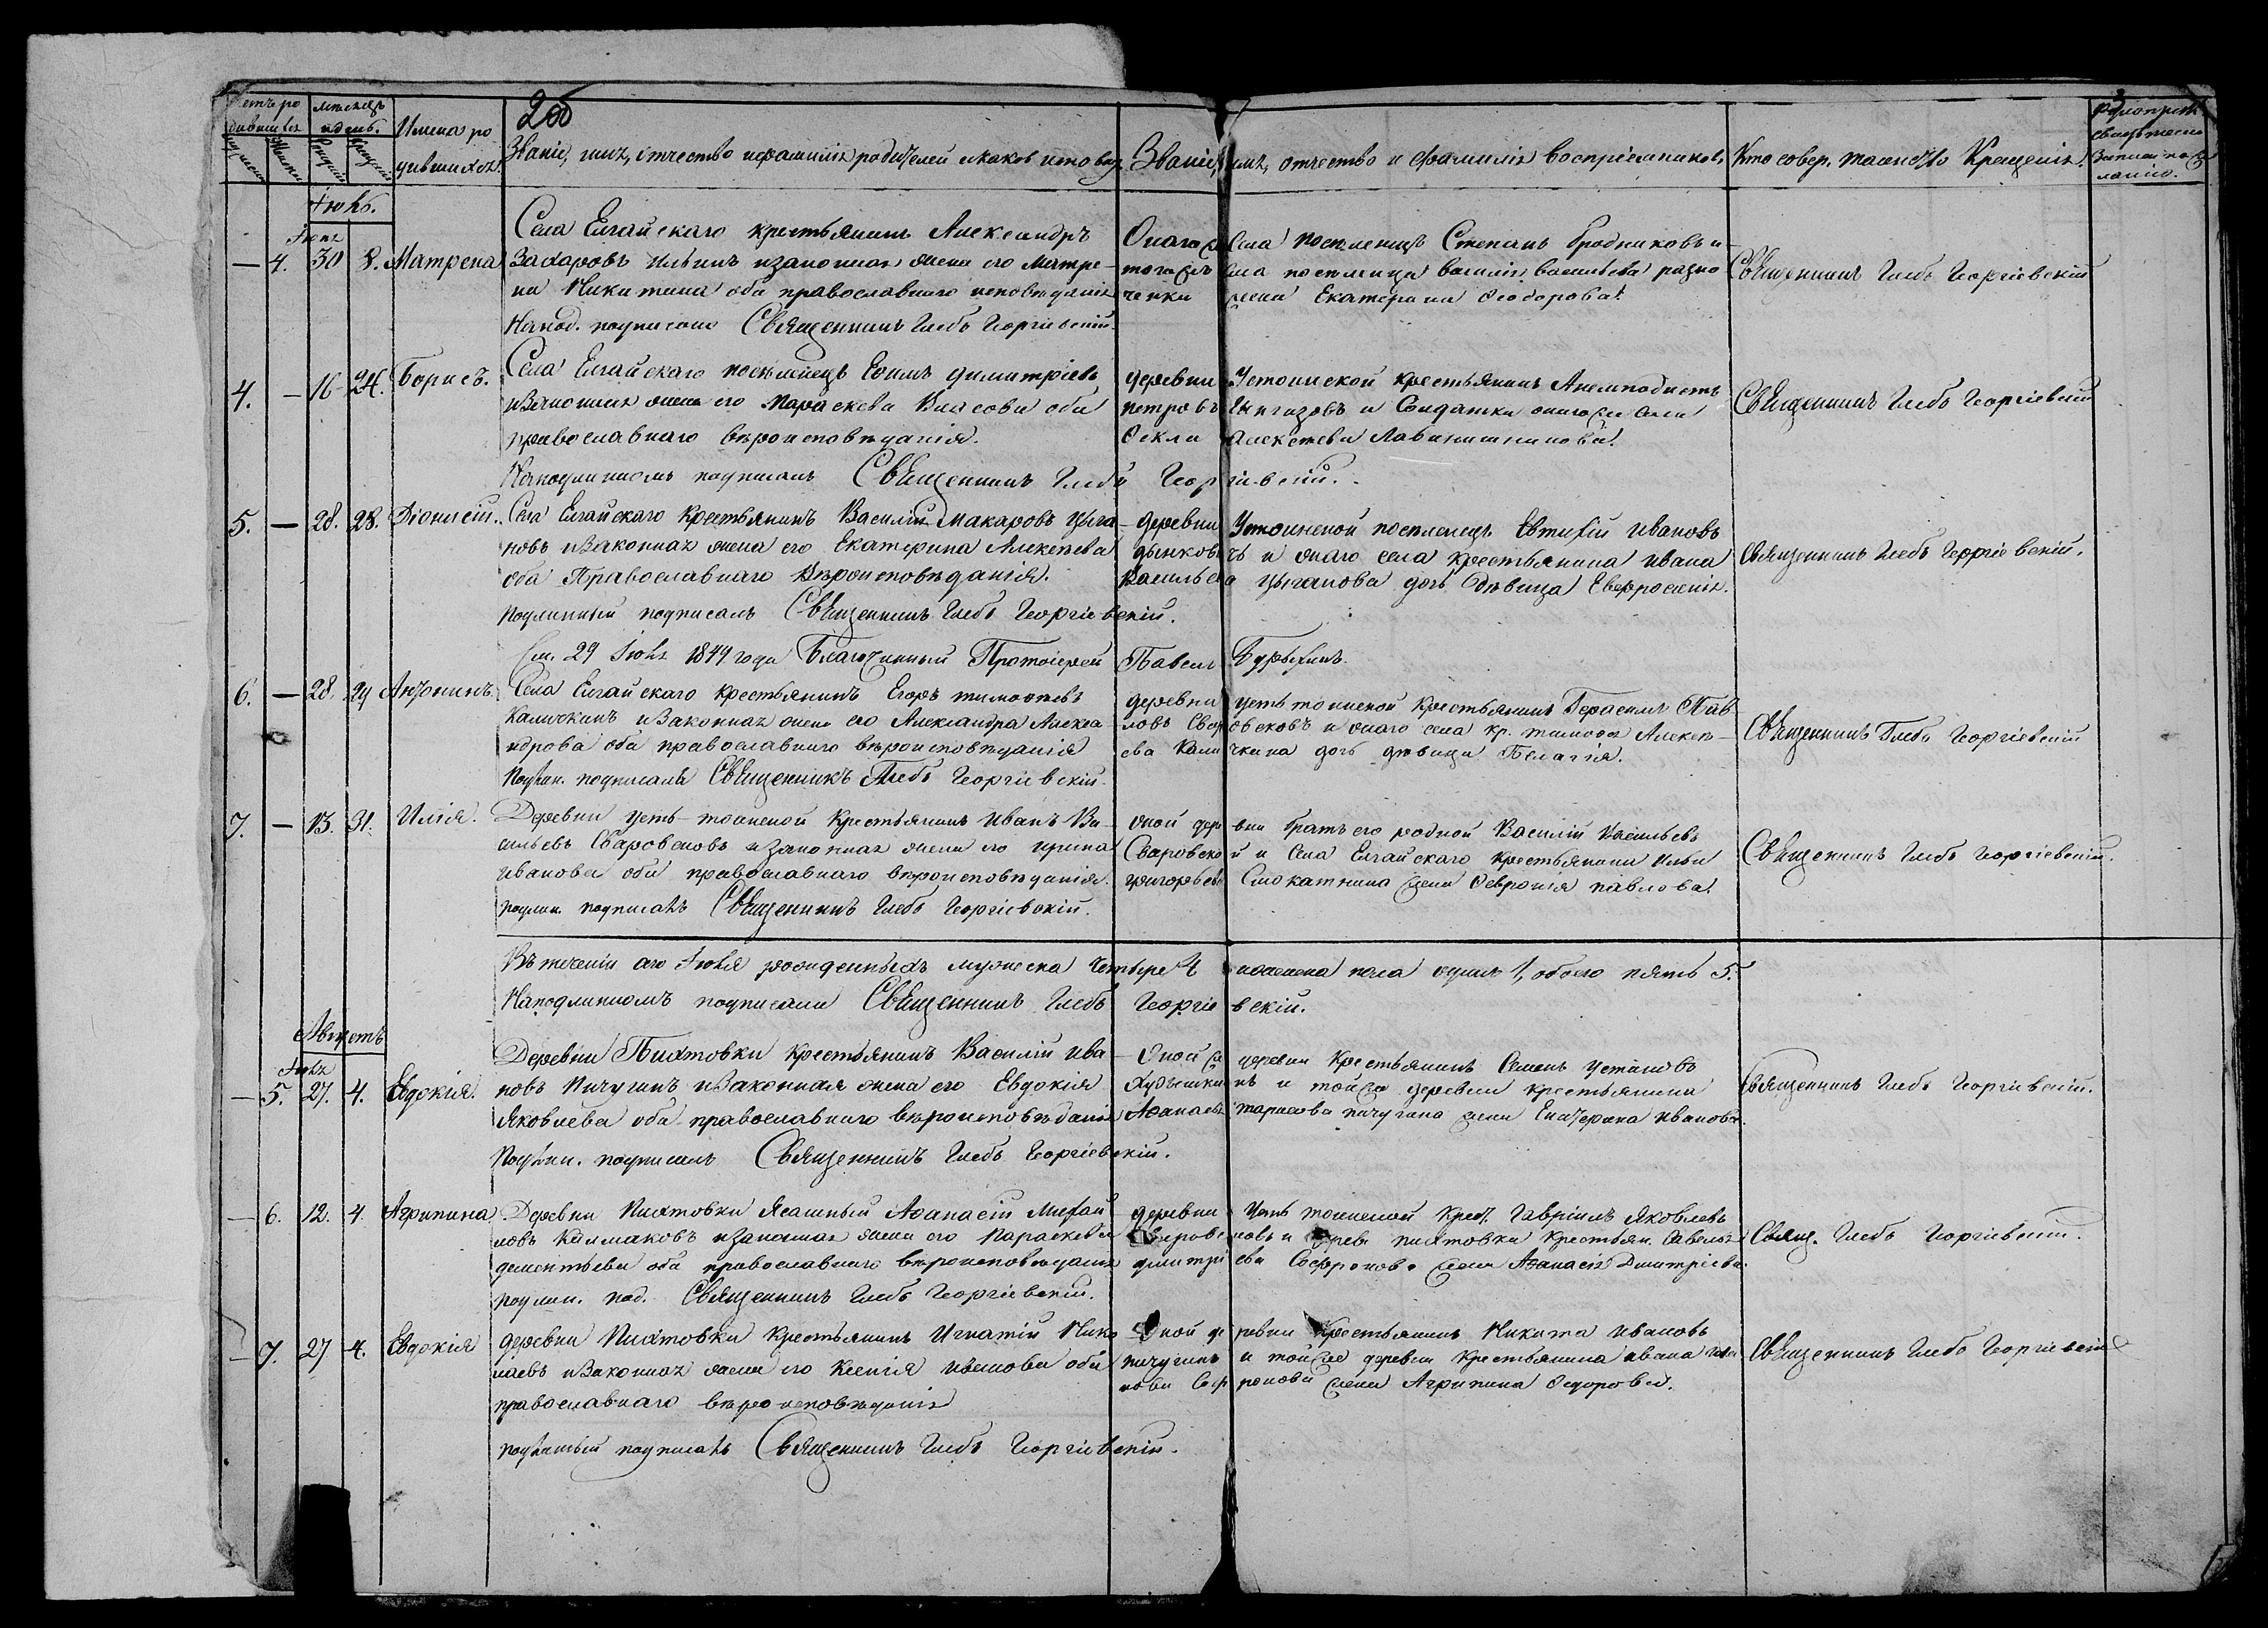 2об
Счетъ ро
дившихся
мѣсяцъ
и день.
Имена ро
дившихся.
Званіе, имя, отчество и фамилія родителей и какова исповед.
Званіе, имя, отчество и фамилія воспріемниковъ
Кто совер. таинство Крещенія.
Іюль.
Іюня
— 4. 30 8. Матрена
Села Елгайскаго крестьянинъ Александръ
Захаровъ Ильинъ и законная жена его Матре-
на Никитина оба православнаго исповеданія
На под. подписано Священникъ Глебъ Георгіевскій.
Онаго села поселенецъ Степанъ Бродниковъ и
тогоже села поселенца Василія Васильева разно
ченки жена Екатерина Ѳеодорова.
Священникъ Глебъ Георгіевскій
4. — 16 24. Борисъ.
Села Елгайскаго поселенецъ Ефимъ Димитріевъ
и Законная жена его Параскева Власова оба
православнаго вѣроисповѣданія.
На подлинномъ подписалъ Священникъ Глебъ Георгіевскій.
деревни Устоинской крестьянинъ Анемподистъ
Петровъ и Солдатки онаго же села
Ѳекла Алексеева
Священникъ Глебъ Георгіевскій
5. — 28. 28. Діонисій.
Села Елгайскаго Крестьянинъ Василій Макаровъ Цыга-
новъ и Законная жена его Екатерина Алексеева
оба Православнаго Вѣроисповѣданія.
Подлинный подписалъ Священникъ Глебъ Георгіевскій.
деревни Устоинской поселенецъ Евтихій Ивановъ
и онаго села крестьянина Ивана
Васильева Цыганова дочь дѣвица Евфросинія.
Священникъ Глебъ Георгіевскій.
См. 29 Іюля 1849 года Благочинный Протоіерей Павелъ
6. — 28. 29 Антонинъ.
Села Елгайскаго крестьянинъ Егоръ Тимофеевъ
Калачкинъ и Законная жена его Александра Алекса
ндрова оба православнаго вѣроисповѣданія
Подлин. подписалъ Священникъ Глебъ Георгіевскій.
деревни Усть тоинской крестьянинъ Герасимъ Пав
ловъ Сваровсковъ и онаго села кр. Тимофея Алексе-
ева Калачкина дочь дѣвица Пелагія.
Священникъ Глебъ Георгіевскій
7. — 13. 31. Илія.
Деревни усть-тоинской Крестьянинъ Иванъ Ва-
сильевъ Сваровсковъ и законная жена его Ирина
Иванова оба православнаго вѣроисповѣданія.
подлин. подписалъ Священникъ Глебъ Георгіевскій.
Оной деревни братъ его родной Василій Васильевъ
Сваровской и Села Елгайскаго крестьянина Ильи
Григорьева Смокатнина жена Ѳевронія Павлова.
Священникъ Глебъ Георгіевскій.
Въ теченіи сего Іюля рожденныхъ мужеска четыре 4 и женска пола одинъ 1, обоего пять 5.
На подлинномъ подписалъ Священникъ Глебъ Георгіевскій.
Августъ
Іюля
— 5. 27. 4. Евдокія.
Деревни Пихтовки крестьянинъ Василій Ива-
новъ Пичугинъ и Законная жена его Евдокія
Яковлева оба православнаго вѣроисповѣданія
Подлин. подписалъ Священникъ Глебъ Георгіевскій.
Оной же деревни Крестьянинъ Семенъ Устиновъ
и тойже деревни крестьянина
Афанасія Тарасова Пичугина жена Екатерина Иванова.
Священникъ Глебъ Георгіевскій.
— 6. 12. 4. Агрипина
Деревни Пихтовки Ясашный Афанасій Михай
ловъ Калмаковъ и Законная жена его Параскева
Дементьева оба православнаго вѣроисповѣданія
подлин. под. Священникъ Глебъ Георгіевскій.
деревни Усть тоинской Крест. Гавріилъ Яковлевъ
Сваровсковъ и дерев. Пихтовки Крестьян. Савелія
Димитріева Софронова жена Афанасія Дмитріева.
Свящ. Глебъ Георгіевскій.
— 7. 27 4. Евдокія
деревни Пихтовки Крестьянинъ Игнатій Нико
лаевъ и Законная жена его Ксенія Иванова оба
православнаго вѣроисповѣданія
подлинный подписалъ Священникъ Глебъ Георгіевскій.
Оной деревни Крестьянинъ Никита Ивановъ
Пичугинъ и тойже деревни Крестьянина Ивана
Софронова жена Агрипина Ѳедорова.
Священникъ Глебъ Георгіевскій